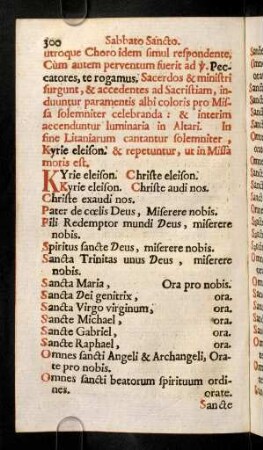 300 Sabbato Sancto.
utroque Choro idem simul respondente,
Cùm autem perventum fuerit ad ℣. Pec-
catores, te rogamus. Sacerdos & ministri
surgunt, & accedentes ad Sacristiam, in-
duuntur paramentis albi coloris pro Mis-
sa solemniter celebranda: & interim
accenduntur luminaria in Altari. In
fine Litaniarum cantantur solemniter,
Kyrie eleison. & repetuntur, ut in Missa
moris est.
KYrie eleison. Christe eleison.
Kyrie eleison. Christe audi nos.
Christe exaudi nos.
Pater de cœlis Deus, Miserere nobis.
Fili Redemptor mundi Deus, miserere
nobis.
Spiritus sancte Deus, miserere nobis.
Sancta Trinitas unus Deus, miserere
nobis.
Sancta Maria, Ora pro nobis.
Sancta Dei genitrix, ora.
Sancta Virgo virginum, ora.
Sancte Michael, ora.
Sancte Gabriel, ora.
Sancte Raphael, ora.
Omnes sancti Angeli & Archangeli, Ora-
te pro nobis.
Omnes sancti beatorum spirituum ordi-
nes. orate.
Sancte